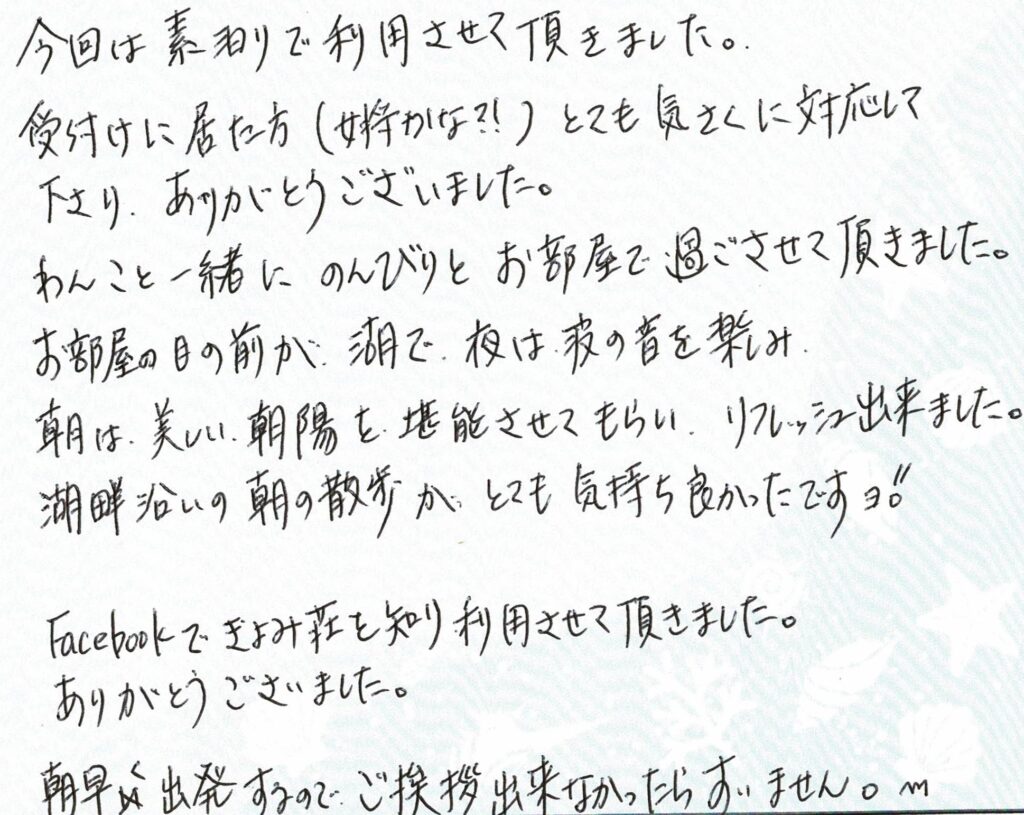 今回は素泊りで利用させて頂きました。
受付けに居た方(女将かな?!)とても気さくに対応して
下さり、ありがとうございました。
わんこと一緒に のんびりと お部屋で過ごさせて頂きました。
お部屋の目の前が、湖で、夜は、波の音を楽しみ、
朝は、美しい、朝陽を、堪能させてもらい、リフレッシュ出来ました。
湖畔沿いの朝の散歩が、とても気持ち良かったですョ。〃
Facebookできよみ荘を知り利用させて頂きました。
ありがとうございました。
朝早く出発するので、ご挨拶出来なかったらすいません。m